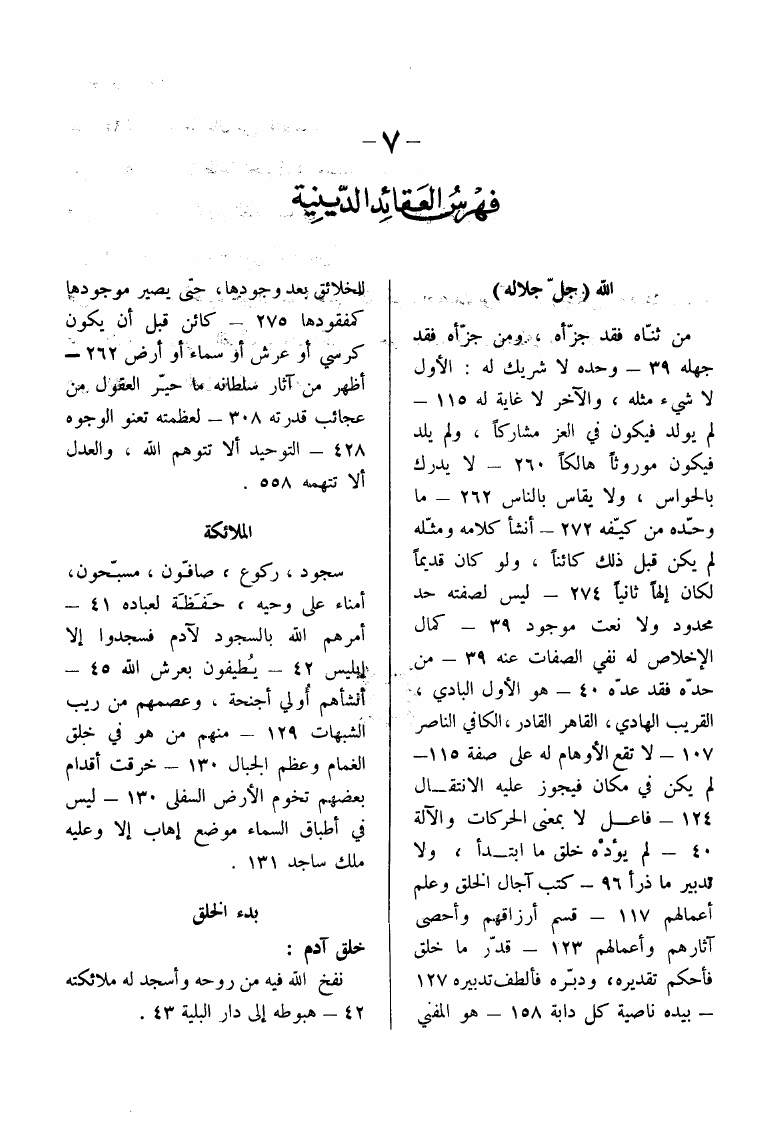 -٧-
فهرس العقائد الدّينية
الله (جلّ جلاله)
من ثنّاه فقد جزّأه ، ومن جزّأه فقد
جهله ٣٩ – وحده لا شريك له : الأول
لا شيء مثله ، والآخر لا غاية له ١١٥ –
لم يولد فيكون في العز مشاركاً ، ولم يلد
فيكون موروثاً هالكاً ٢٦٠ – لا يدرك
بالحواس ، ولا يقاس بالناس ٢٦٢ – ما
وحّده من كيّفه ٢٧٢ – أنشأ كلامه ومثّله
لم يكن قبل ذلك كائناً ، ولو كان قديماً
لكان إلهاً ثانياً ٢٧٤ – ليس لصفته حد
محدود ولا نعت موجود ٣٩ – كمال
الإخلاص له نفي الصفات عنه ٣٩ – من
حدّه فقد عدّه ٤٠ – هو الأول البادي ،
القريب الهادي، القاهر القادر، الكافي الناصر
١٠٧ – لا تقع الأوهام له على صفة ١١٥–
لم يكن في مكان فيجوز عليه الانتقـال
١٢٤ – فاعـل لا بمعنى الحركات والآلة
٤٠ – لم يؤدْه خلق ما ابتـدأ ، ولا
تدبير ما ذرأ ٩٦ – كتب آجال الخلق وعلم
أعمالهم ١١٧ – قسم أرزاقهم وأحصى
آثارهم وأعمالهم ١٢٣ – قدّر ما خلق
فأحكم تقديره، ودبّره فألطف تدبيره ١٢٧
– بيده ناصية كل دابة ١٥٨ – هو المفني
للخلائق بعد وجودها، حتّى يصير موجودها
كمفقودها ٢٧٥ – كائن قبل أن يكون
كرسي أو عرش أو سماء أو أرض ٢٦٢ –
أظهر من آثار سلطانه ما حيّر العقول من
عجائب قدرته ٣٠٨ – لعظمته تعنو الوجوه
٤٢٨ – التوحيد ألا تتوهم الله ، والعدل
ألا تتهمه ٥٥٨ .
الملائكة
سجود ، ركوع ، صافّون ، مسبّحون،
أمناء على وحيه ، حَفَظَة لعباده ٤١ –
أمرهم الله بالسجود لآدم فسجدوا إلا
إبليس ٤٢ – يُطيفون بعرش الله ٤٥ –
أنشأهم أُولي أجنحة ، وعصمهم من ريب
الشبهات ١٢٩ – منهم من هو في خلق
الغمام وعظم الجبال ١٣٠ – خرقت أقدام
بعضهم تخوم الأرض السفلى ١٣٠ – ليس
في أطباق السماء موضع إهاب إلا وعليه
ملك ساجد ١٣١ .
بدء الخلق
خلق آدم :
نفخ الله فيه من روحه وأسجد له ملائكته
٤٢ – هبوطه إلى دار البلية ٤٣ .